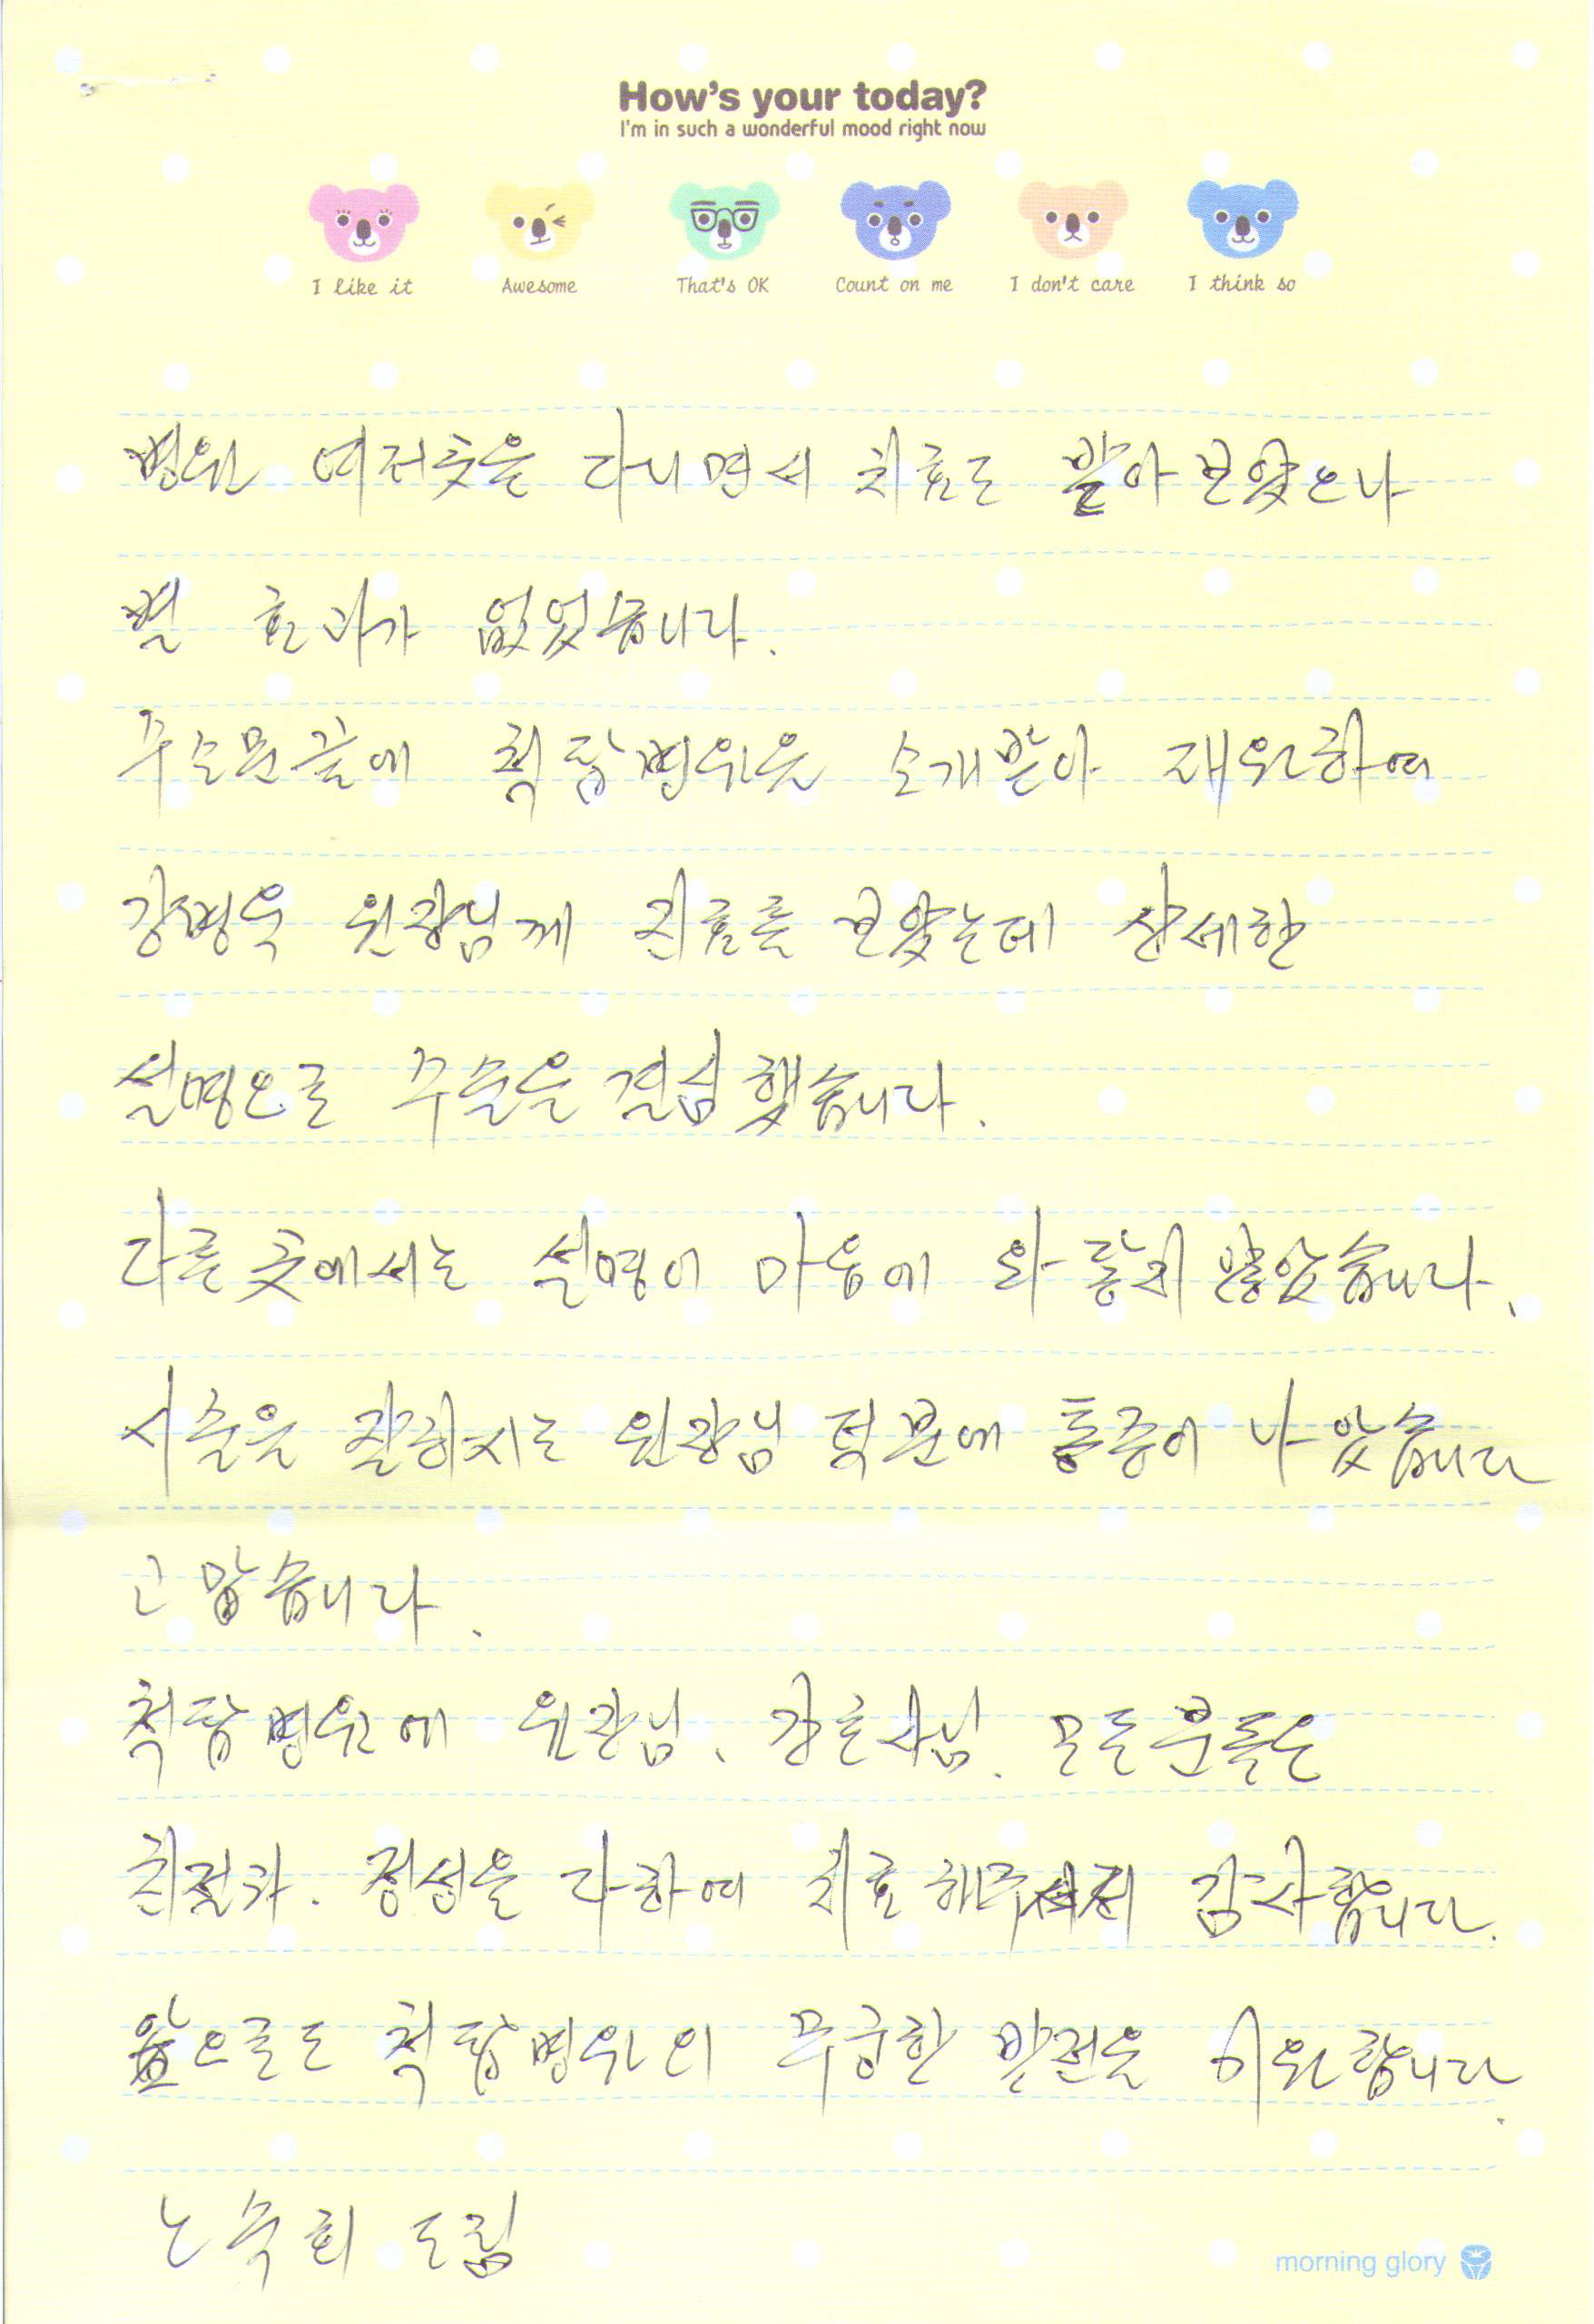 How's your today?
I'm in such a wonderful mood right now
I like it Awesome That's OK Count on me I don't care I think so
병원 여러곳을 다니면서 치료도 받아 보았으나
별 효과가 없었습니다.
수소문끝에 척탑병원을 소개받아 내원하여
강병욱 원장님께 진료를 보았는데 상세한
설명으로 수술을 결심 했습니다.
다른 곳에서는 설명이 마음에 와 닿지 않았습니다.
시술을 잘하시는 원장님 덕분에 통증이 나았습니다
고맙습니다.
척탑병원에 원장님, 간호사님. 모든분들은
친절과. 정성을 다하여 치료해주셔서 감사합니다.
앞으로도 척탑병원의 무궁한 발전을 기원합니다.
노숙희 드림
morning glory